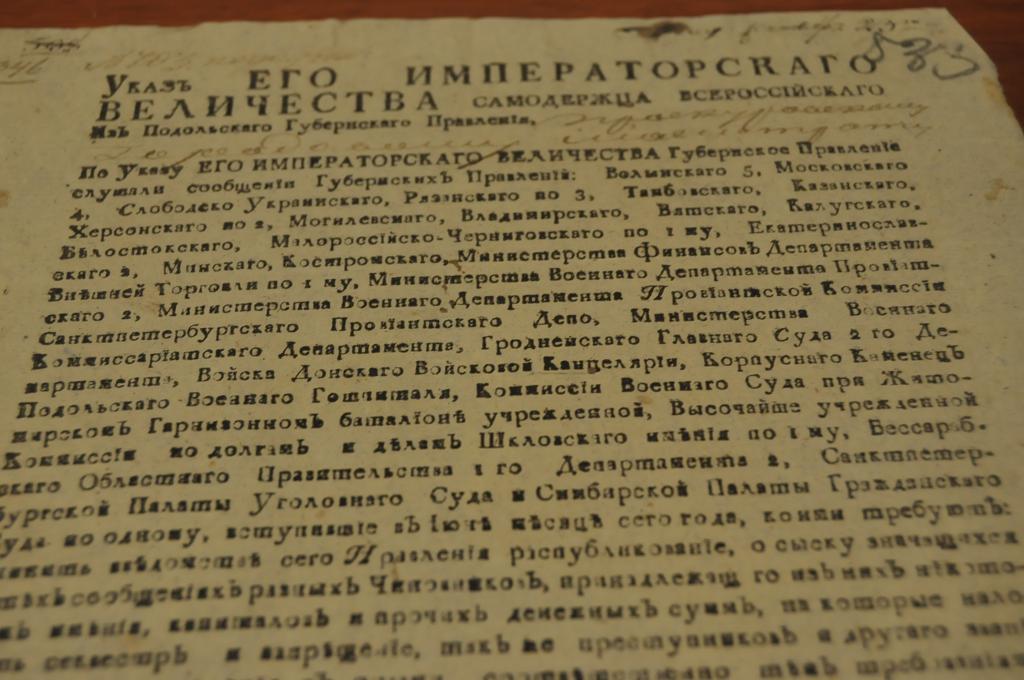 533
Указъ ЕГО ИМПЕРАТОРСКАГО
ВЕЛИЧЕСТВА САМОДЕРЖЦА ВСЕРОССІЙСКАГО
Изъ Подольскаго Губернскаго Правленія,
По Указу ЕГО ИМПЕРАТОРСКАГО ВЕЛИЧЕСТВА Губернское Правленіе
слушали сообщеніи Губернскихъ Правленій: Волынскаго 5, Московскаго
4, Слободско Украинскаго, Рязанскаго по 3, Тамбовскаго, Казанскаго,
Херсонскаго по 2, Могилевскаго, Владимирскаго, Вятскаго, Калугскаго,
Бѣлостокскаго, Малороссійско-Черниговскаго по 1 му, Екатеринослав-
скаго 2, Минскаго, Костромскаго, Министерства Финансовъ Департамента
Внѣшней Торговли по 1 му, Министерства Военнаго Департамента Провіант-
скаго 2, Министерства Военнаго Департамента Провіантской Коммиссіи
Санктпетербургскаго Провіантскаго Депо, Министерства Военнаго
Коммиссаріатскаго Департамента, Гродненскаго Главнаго Суда 2 го Де-
партамента, Войска Донскаго Войсковой Канцеляріи, Корпуснаго Каменецъ
Подольскаго Военнаго Гошпиталя, Коммиссіи Военнаго Суда при Жито-
мирскомъ Гарнизонномъ баталіонѣ учрежденной, Высочайше учрежденной
Коммиссіи по долгамъ и дѣламъ Шкловскаго имѣнія по 1 му, Бессараб-
скаго Областнаго Правительства 1 го Департамента 2, Санктпетер-
бургской Палаты Уголовнаго Суда и Симбирской Палаты Гражданскаго
Суда по одному, вступившіе въ Іюнѣ мѣсяцѣ сего года, коими требуютъ:
вѣдомствѣ сего Правленія распубликованіе, о сыску значащихся
сообщеніяхъ разныхъ Чиновниковъ, принадлежащ го изъ нихъ нѣкото-
имѣнія, капиталовъ и прочихъ денежныхъ суммъ, на которые нало
секвестръ и запрещеніе, такъ же преступниковъ и другаго званія
соотвѣтственно тѣмъ требованіямъ